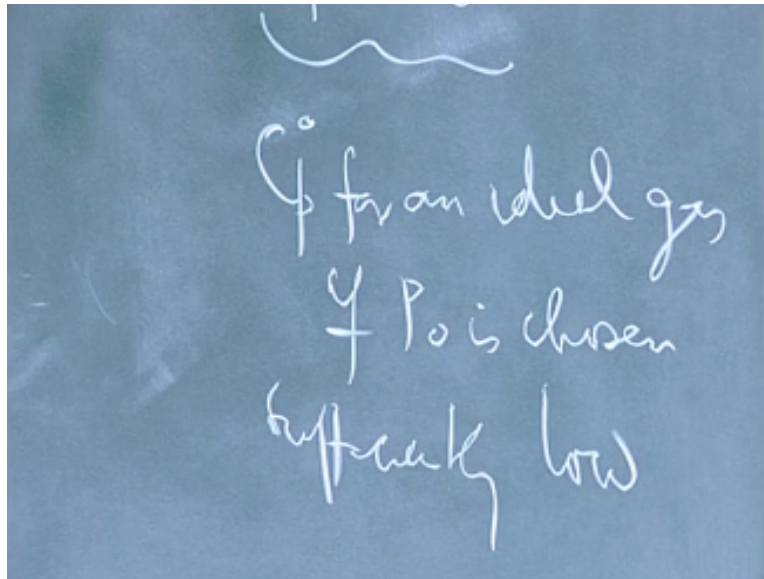 Cp° for an ideal gas
if Po is chosen
sufficiently low